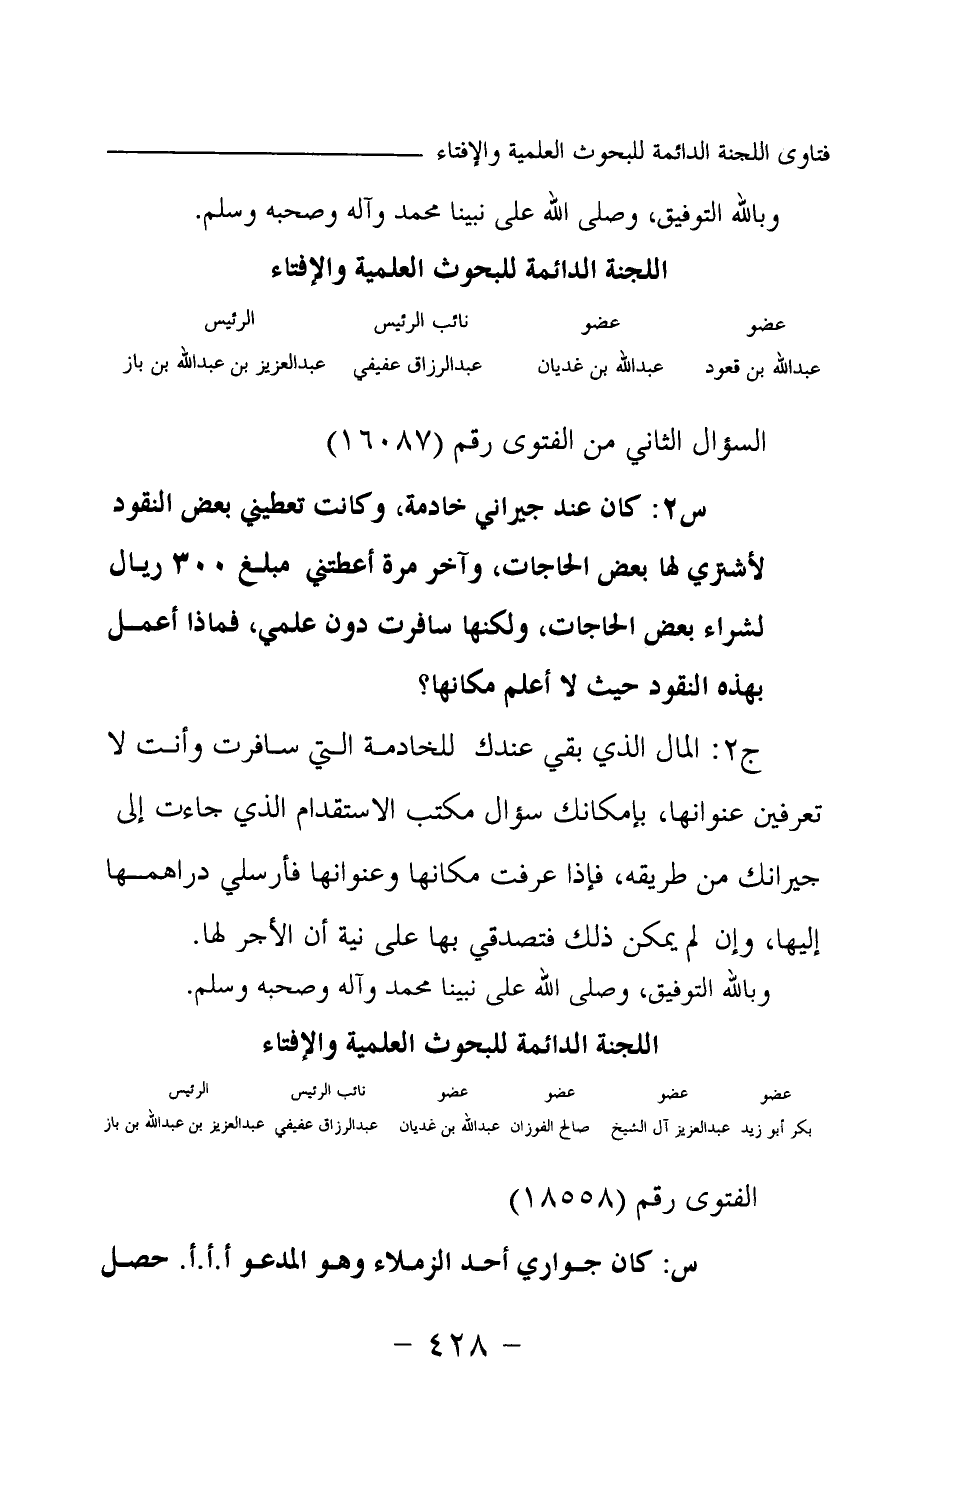 فتاوى اللجنة الدائمة للبحوث العلمية والإفتاء
وبالله التوفيق، وصلى الله على نبينا محمد وآله وصحبه وسلم.
اللجنة الدائمة للبحوث العلمية والإفتاء
عضو عضو نائب الرئيس الرئيس
عبدالله بن قعود عبدالله بن غديان عبدالرزاق عفيفي عبدالعزيز بن عبدالله بن باز
السؤال الثاني من الفتوى رقم (١٦٠٨٧)
س٢: كان عند جيراني خادمة، وكانت تعطيني بعض النقود
لأشتري لها بعض الحاجات، وآخر مرة أعطتني مبلغ ٣٠٠ ريال
لشراء بعض الحاجات، ولكنها سافرت دون علمي، فماذا أعمل
بهذه النقود حيث لا أعلم مكانها؟
ج٢: المال الذي بقي عندك للخادمة التي سافرت وأنت لا
تعرفين عنوانها، بإمكانك سؤال مكتب الاستقدام الذي جاءت إلى
جيرانك من طريقه، فإذا عرفت مكانها وعنوانها فأرسلي دراهمها
إليها، وإن لم يمكن ذلك فتصدقي بها على نية أن الأجر لها.
وبالله التوفيق، وصلى الله على نبينا محمد وآله وصحبه وسلم.
اللجنة الدائمة للبحوث العلمية والإفتاء
عضو عضو عضو عضو نائب الرئيس الرئيس
بكر أبو زيد عبدالعزيز آل الشيخ صالح الفوزان عبدالله بن غديان عبدالرزاق عفيفي عبدالعزيز بن عبدالله بن باز
الفتوى رقم (١٨٥٥٨)
س: كان جواري أحد الزملاء وهو المدعو أ.أ.أ. حصل
– ٤٢٨ –